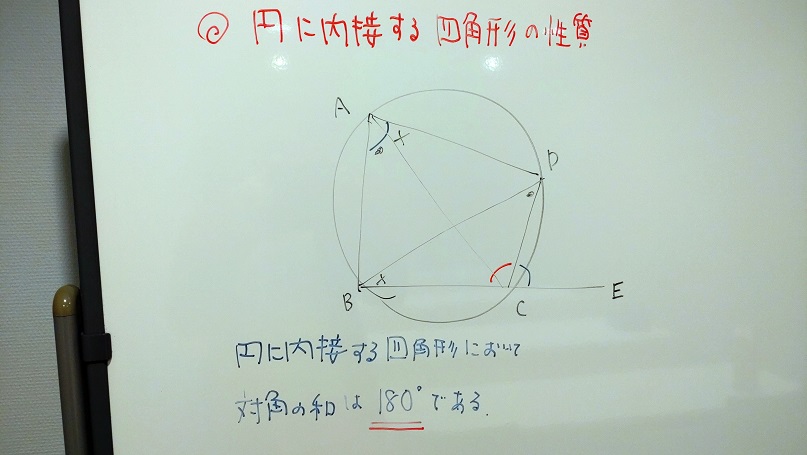 ◎ 円に内接する四角形の性質
A
D
B
C
E
円に内接する四角形において
対角の和は180°である.